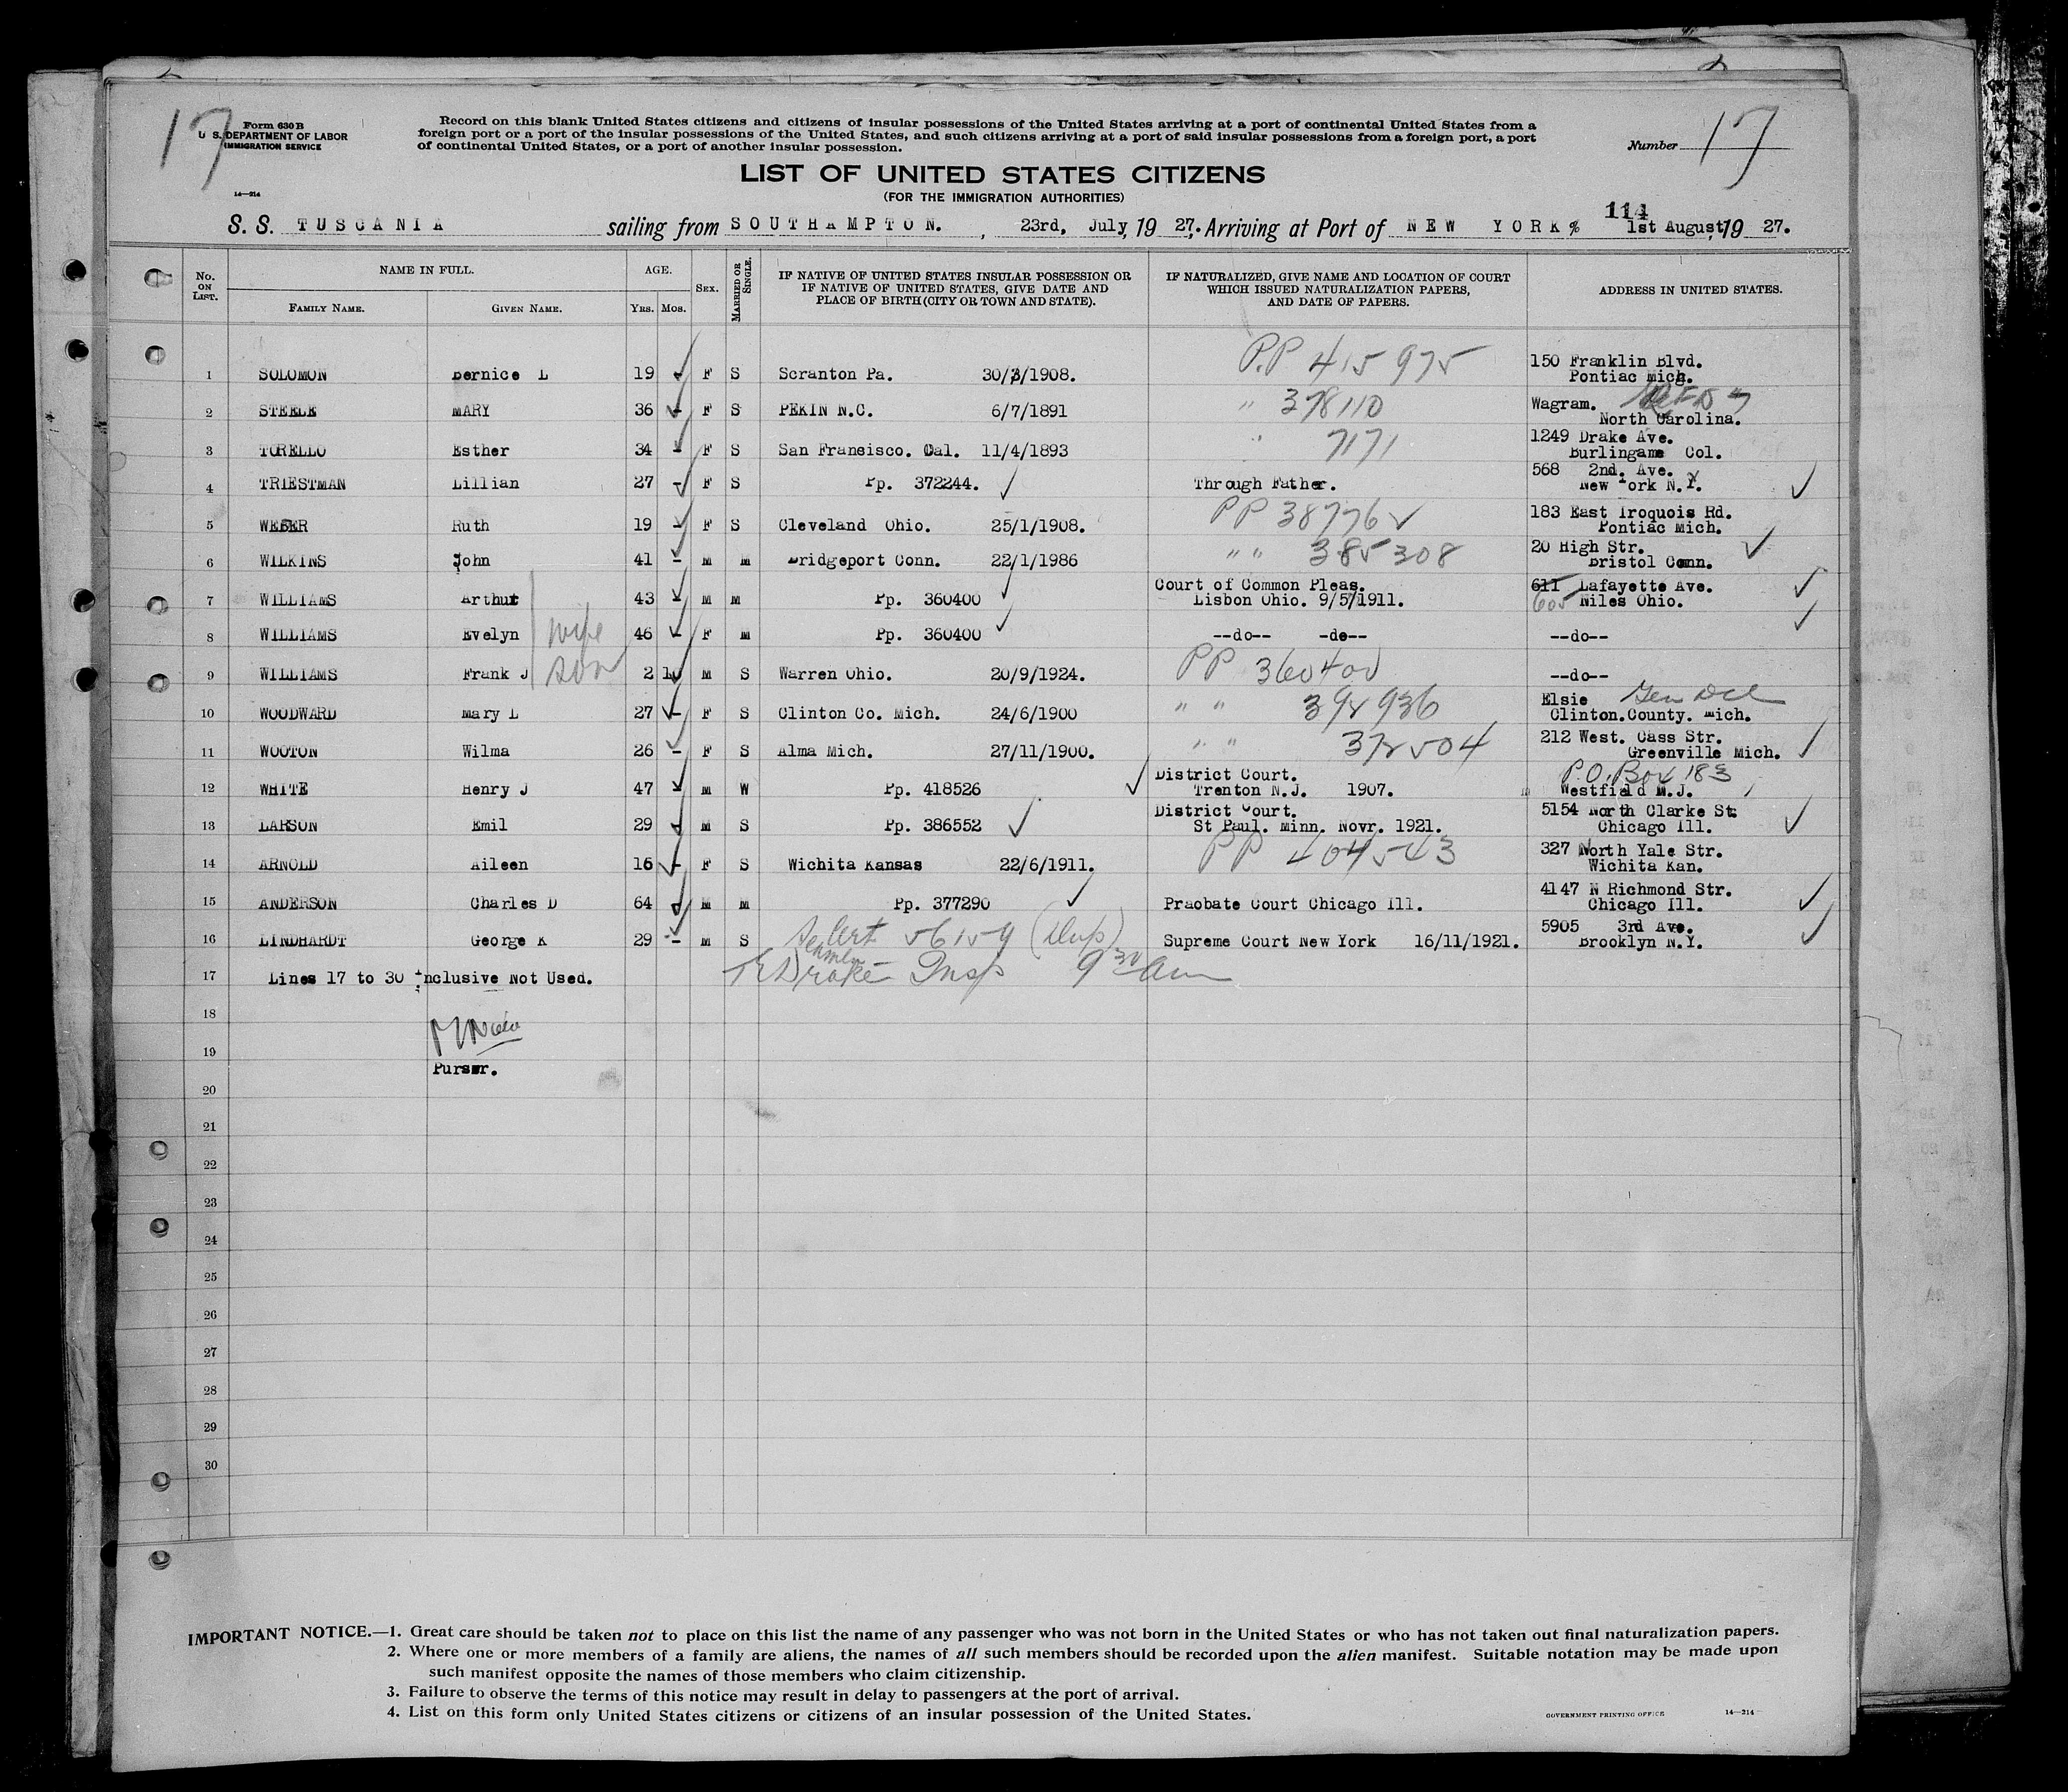 17
Form 630 B
U. S. DEPARTMENT OF LABOR
IMMIGRATION SERVICE
14—214
Record on this blank United States citizens and citizens of insular possessions of the United States arriving at a port of continental United States from a
foreign port or a port of the insular possessions of the United States, and such citizens arriving at a port of said insular possessions from a foreign port, a port
of continental United States, or a port of another insular possession.
Number 17
LIST OF UNITED STATES CITIZENS
(FOR THE IMMIGRATION AUTHORITIES)
114
S. S. TUSCANIA sailing from SOUTHAMPTON. , 23rd, July, 19 27. Arriving at Port of NEW YORK% 1st August, 19 27.
No. ON LIST. NAME IN FULL. AGE. SEX. MARRIED OR SINGLE. IF NATIVE OF UNITED STATES INSULAR POSSESSION OR IF NATIVE OF UNITED STATES, GIVE DATE AND PLACE OF BIRTH (CITY OR TOWN AND STATE). IF NATURALIZED, GIVE NAME AND LOCATION OF COURT WHICH ISSUED NATURALIZATION PAPERS, AND DATE OF PAPERS. ADDRESS IN UNITED STATES.
FAMILY NAME. GIVEN NAME. YRS. MOS.
1 SOLOMON Bernice L 19 - F S Scranton Pa. 30/3/1908. P.P 415975 150 Franklin Blvd.
Pontiac Mich.
2 STEELE MARY 36 - F S PEKIN N.C. 6/7/1891 " 378110 Wagram.
North Carolina.
3 TORELLO Esther 34 - F S San Fransisco. Cal. 11/4/1893 " 7171 1249 Drake Ave.
Burlingame Col.
4 TRIESTMAN Lillian 27 - F S Pp. 372244. Through Father. 568 2nd. Ave.
New York N.Y.
5 WEBER Ruth 19 - F S Cleveland Ohio. 25/1/1908. PP 38776 183 East Iroquois Rd.
Pontiac Mich.
6 WILKINS John 41 - M M Bridgeport Conn. 22/1/1986 " " 385308 20 High Str.
Bristol Conn.
7 WILLIAMS Arthur 43 - M M Pp. 360400 Court of Common Pleas.
Lisbon Ohio. 9/5/1911. 611 Lafayette Ave.
605 Niles Ohio.
8 WILLIAMS Evelyn wife 46 - F M Pp. 360400 --do-- -do-- --do--
9 WILLIAMS Frank J son 2 10 M S Warren Ohio. 20/9/1924. PP 360400 --do--
10 WOODWARD Mary L 27 - F S Clinton Co. Mich. 24/6/1900 " " 392936 Elsie Gen Del
Clinton.County. Mich.
11 WOOTON Wilma 26 - F S Alma Mich. 27/11/1900. " " 372504 212 West. Cass Str.
Greenville Mich.
12 WHITE Henry J 47 - M W Pp. 418526 District Court.
Trenton N.J. 1907. P.O. Box 183
Westfield N.J.
13 LARSON Emil 29 - M S Pp. 386552 District Court.
St Paul. Minn. Novr. 1921. 5154 North Clarke St.
Chicago Ill.
14 ARNOLD Aileen 16 - F S Wichita Kansas 22/6/1911. PP 404543 327 North Yale Str.
Wichita Kan.
15 ANDERSON Charles D 64 - M M Pp. 377290 Praobate Court Chicago Ill. 4147 N Richmond Str.
Chicago Ill.
16 LINDHARDT George K 29 - M S Cert 56159 (Dup) Supreme Court New York 16/11/1921. 5905 3rd Ave.
Brooklyn N.Y.
17 Lines 17 to 30 inclusive Not Used. Drake Insp 9 30 am
18
19
Purser.
20
21
22
23
24
25
26
27
28
29
30
IMPORTANT NOTICE.—1. Great care should be taken not to place on this list the name of any passenger who was not born in the United States or who has not taken out final naturalization papers.
2. Where one or more members of a family are aliens, the names of all such members should be recorded upon the alien manifest. Suitable notation may be made upon
such manifest opposite the names of those members who claim citizenship.
3. Failure to observe the terms of this notice may result in delay to passengers at the port of arrival.
4. List on this form only United States citizens or citizens of an insular possession of the United States.
GOVERNMENT PRINTING OFFICE 14—214